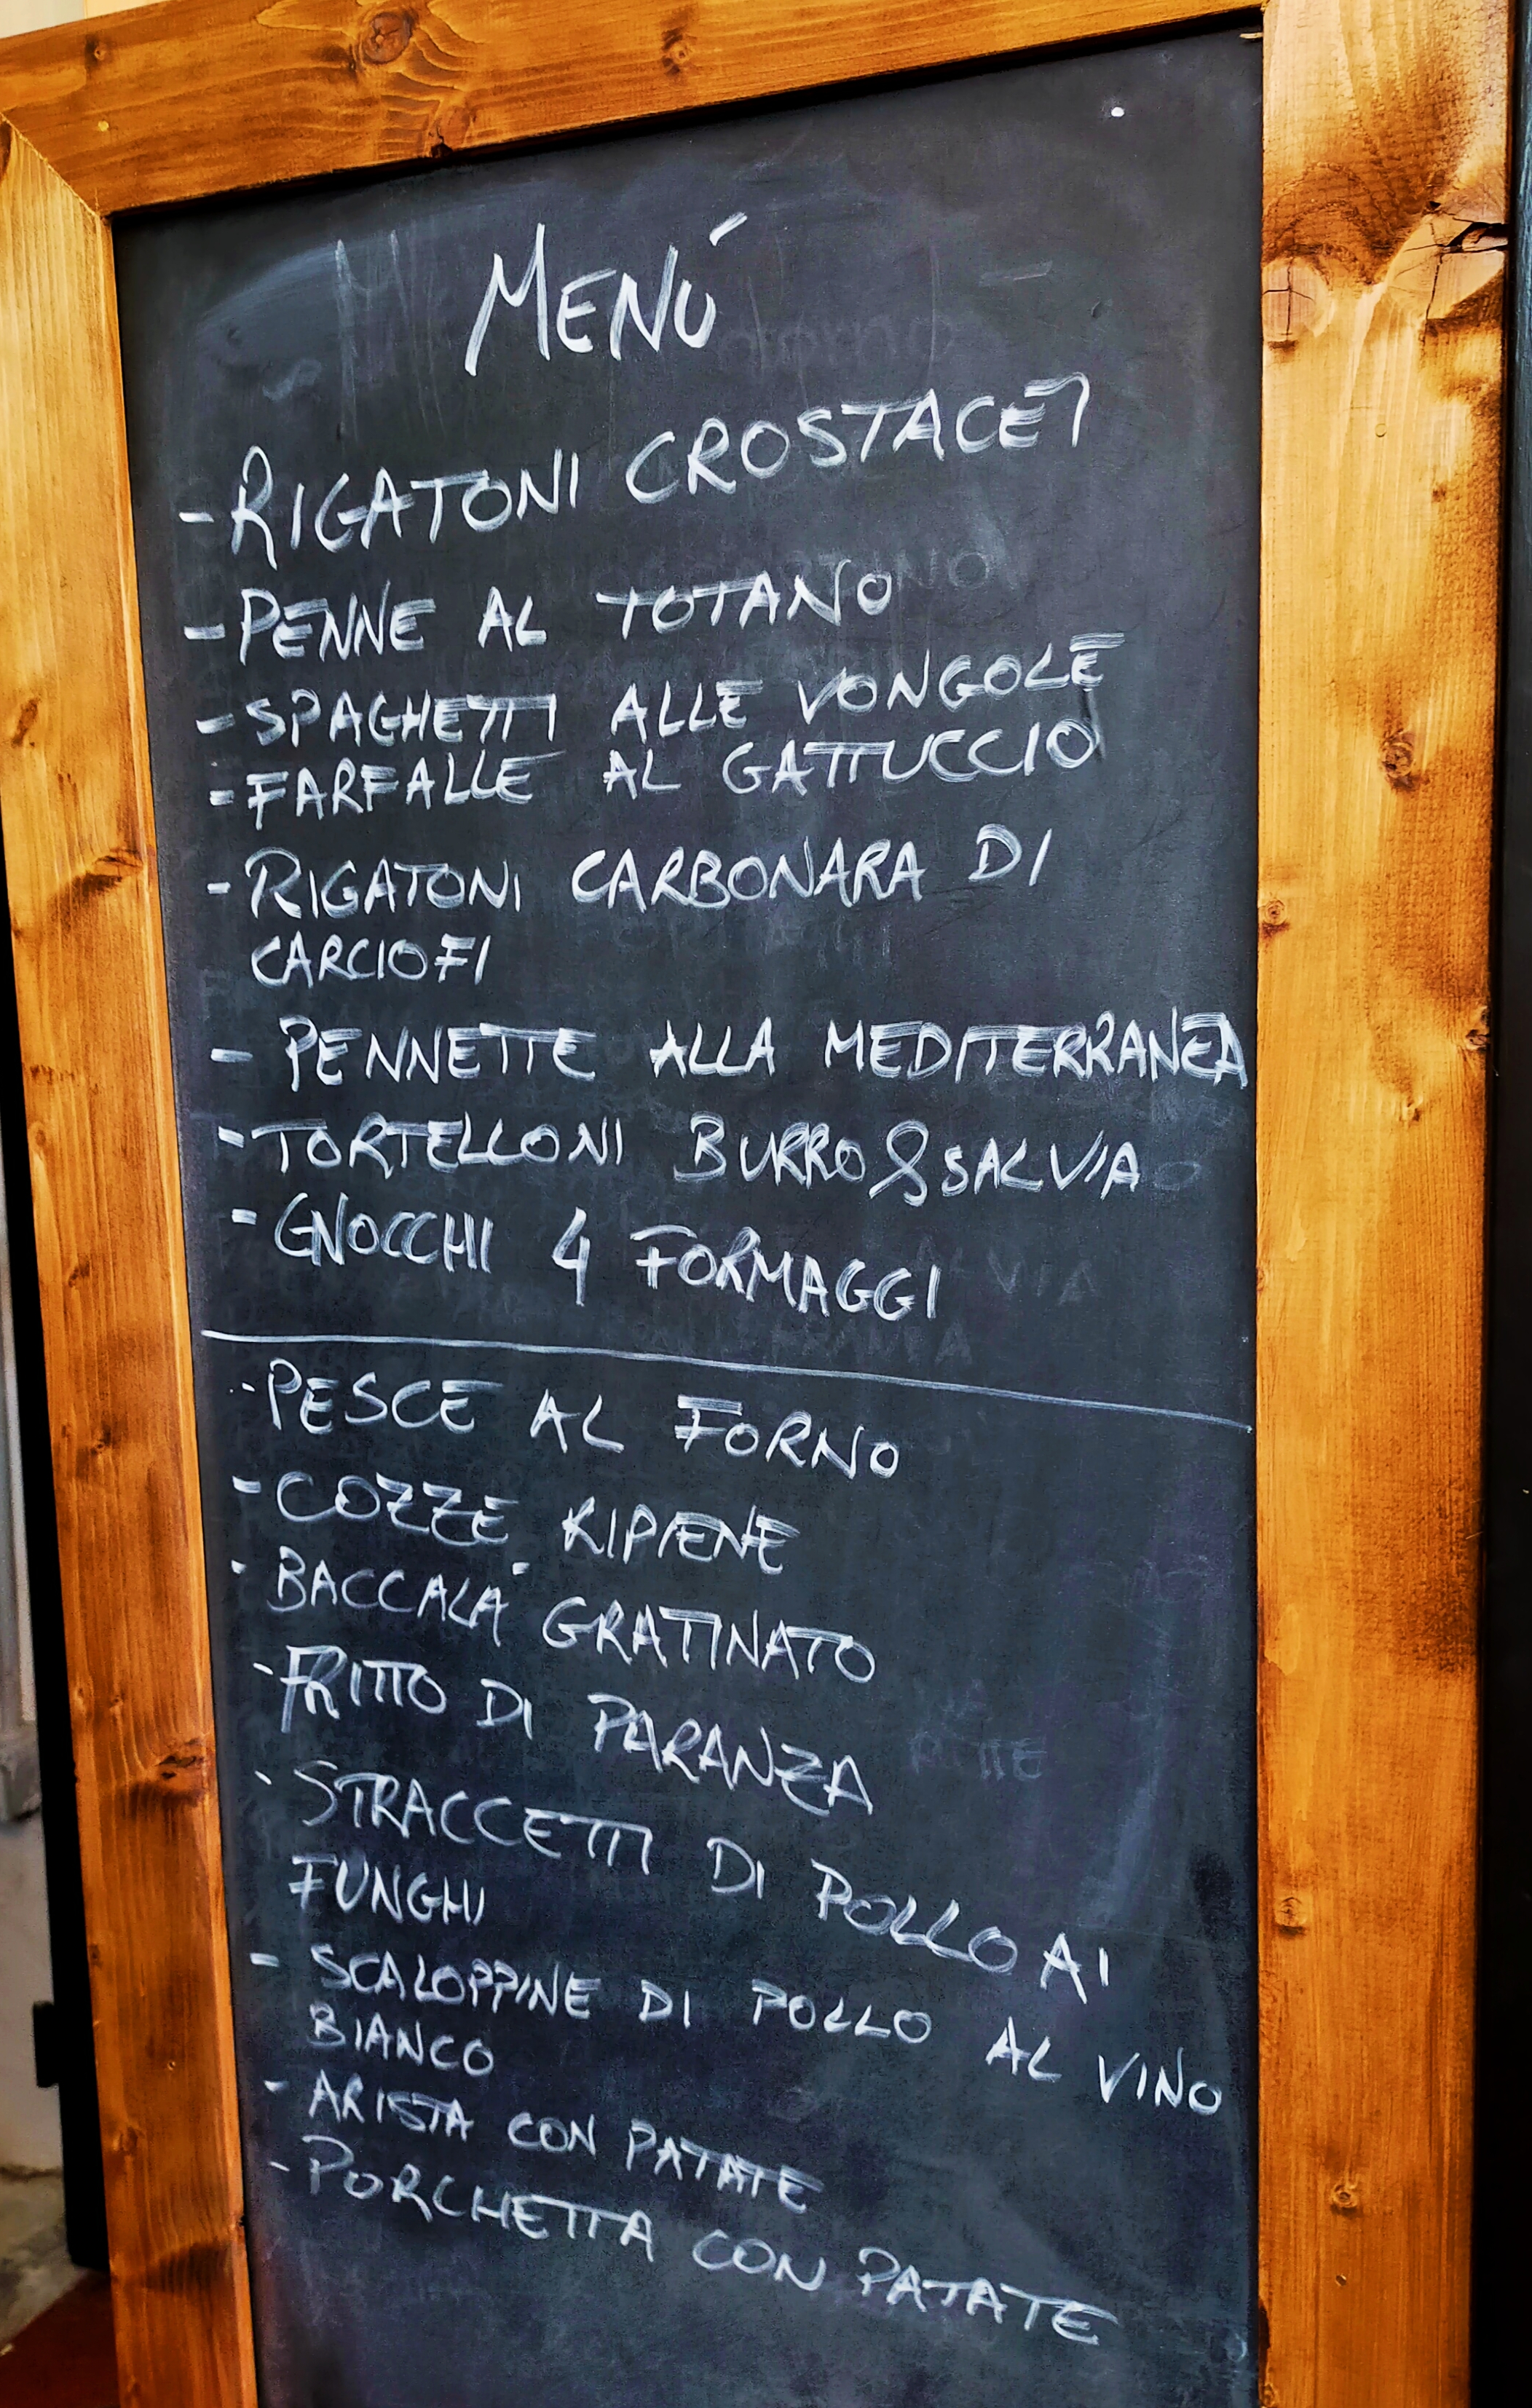 MENÚ
-RIGATONI CROSTACEI
-PENNE AL TOTANO
-SPAGHETTI ALLE VONGOLE
-FARFALLE AL GATTUCCIO
-RIGATONI CARBONARA DI
CARCIOFI
- PENNETTE ALLA MEDITERRANEA
-TORTELLONI BURRO&SALVIA
-GNOCCHI 4 FORMAGGI
-PESCE AL FORNO
-COZZE RIPIENE
-BACCALA' GRATINATO
-FRITTO DI PARANZA
-STRACCETTI DI POLLO AI
FUNGHI
- SCALOPPINE DI POLLO AL VINO
BIANCO
-ARISTA CON PATATE
-PORCHETTA CON PATATE